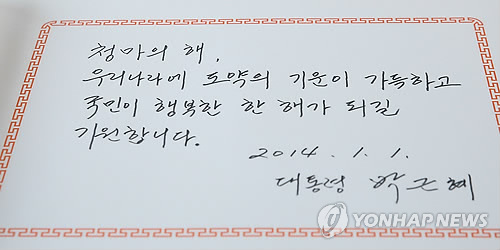 청마의 해,
우리나라에 도약의 기운이 가득하고
국민이 행복한 한 해가 되길
기원합니다.
2014. 1. 1.
대통령 박근혜
YONHAP NEWS